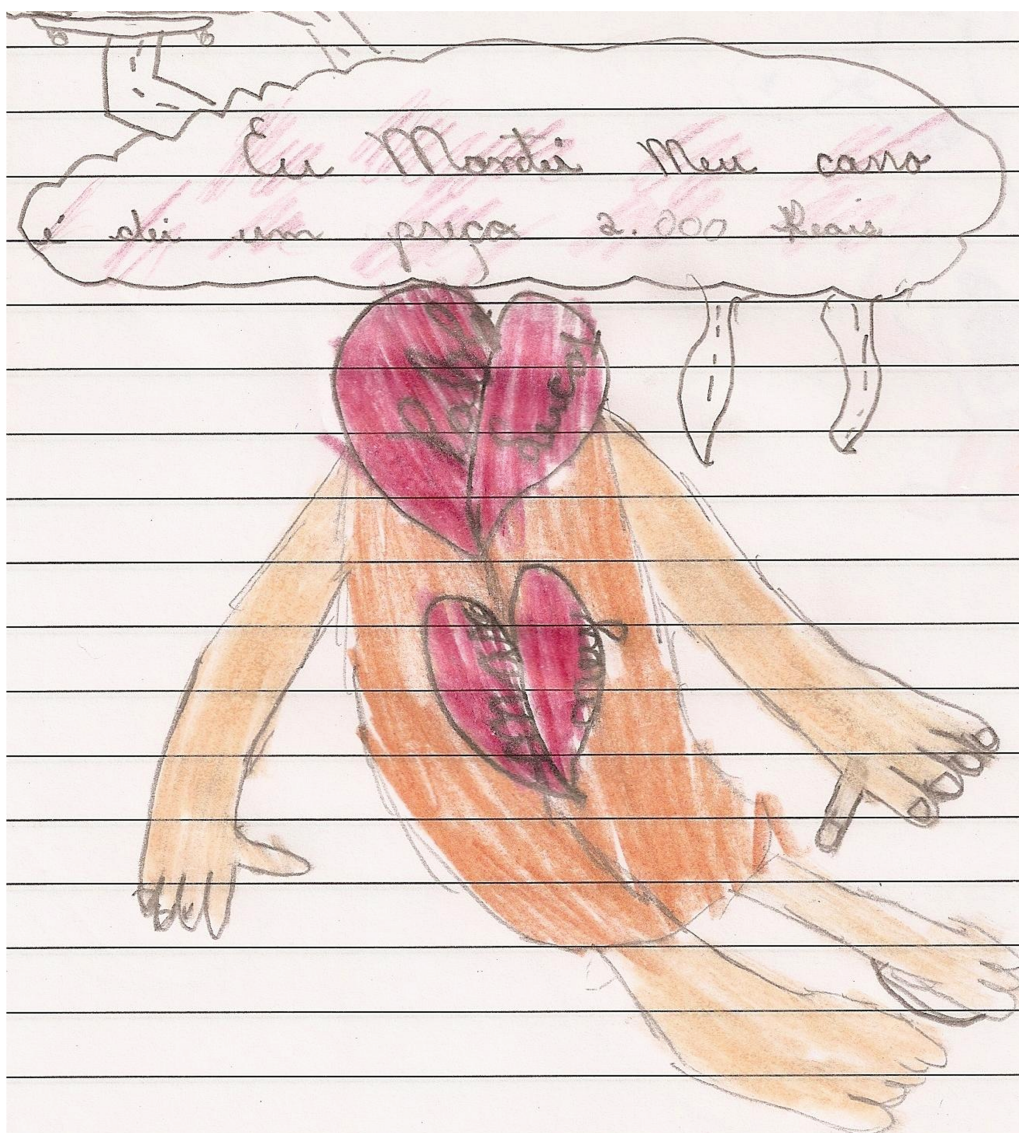 Eu Montei Meu carro
é dei um preço 2.000 Reais
Lucas